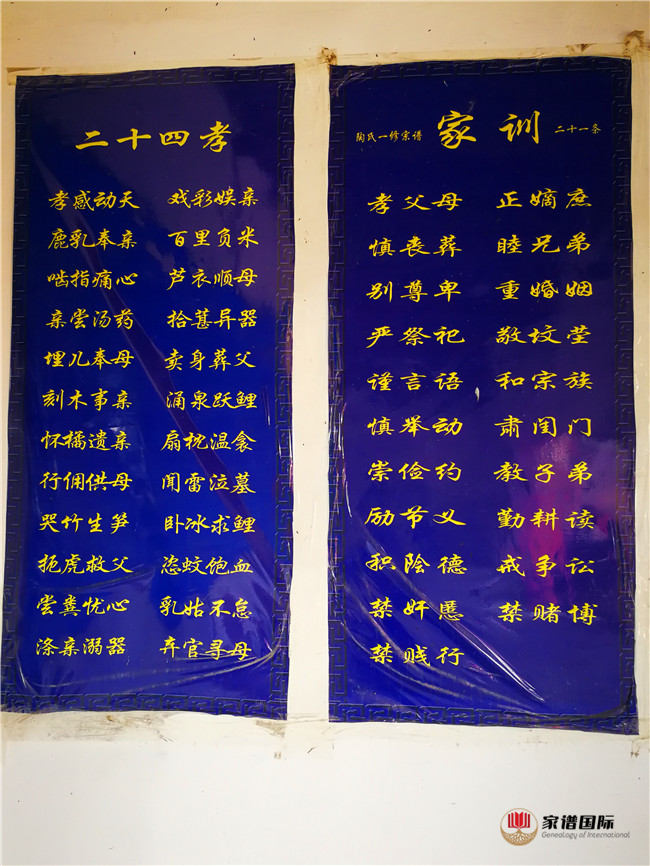 二十四孝
孝感动天 戏彩娱亲
鹿乳奉亲 百里负米
啮指痛心 芦衣顺母
亲尝汤药 拾葚异器
埋儿奉母 卖身葬父
刻木事亲 涌泉跃鲤
怀橘遗亲 扇枕温衾
行佣供母 闻雷泣墓
哭竹生笋 卧冰求鲤
扼虎救父 恣蚊饱血
尝粪忧心 乳姑不怠
涤亲溺器 弃官寻母
陶氏一修宗谱 家训 二十一条
孝父母 正嫡庶
慎丧葬 睦兄弟
别尊卑 重婚姻
严祭祀 敬坟茔
谨言语 和宗族
慎举动 肃闺门
崇俭约 教子弟
励节义 勤耕读
积阴德 戒争讼
禁奸慝 禁赌博
禁贱行
家谱国际
Genealogy of International